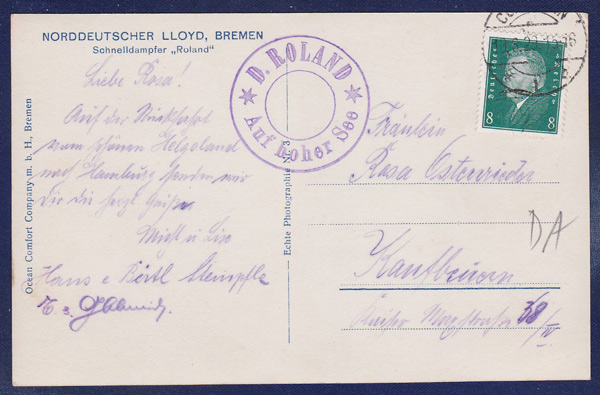 NORDDEUTSCHER LLOYD, BREMEN
Schnelldampfer „Roland"
Liebe Rosa!
Auf der Rückfahrt
vom schönen Helgoland
nach Hamburg senden wir
Dir die herzl. Grüße
Michl u. Lise
Hans
D. ROLAND
Auf hoher See
Deutsches Reich
8 8
Fräulein
Rosa Osterrieder
Kaufbeuren
38/IV
DA
Ocean Comfort Company m. b. H., Bremen
Echte Photographie Nr. 3